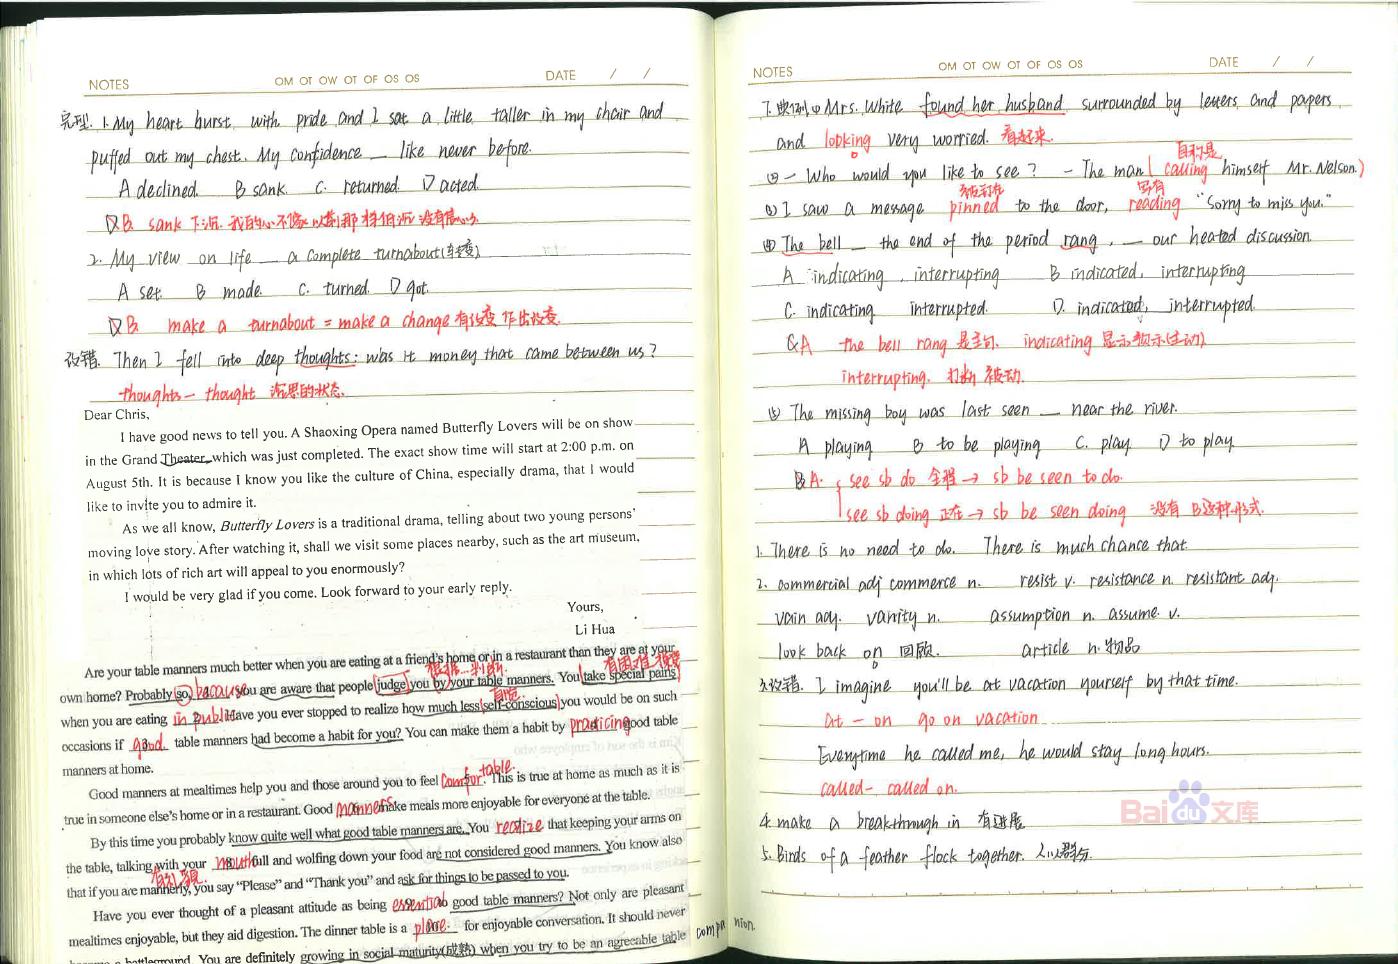 NOTES
OM OT OW OT OF OS OS
DATE / /
完型. 1. My heart burst with pride and I sat a little taller in my chair and
puffed out my chest. My confidence __ like never before.
A declined. B sank. C. returned. D acted.
D B. sank 下沉.
2. My view on life __ a complete turnabout (转变)
A set. B made. C. turned. D got.
D B. make a turnabout = make a change 有改变 作出改变.
改错. Then I fell into deep thoughts: was it money that came between us?
thoughts — thought 沉思的状态.
Dear Chris,
I have good news to tell you. A Shaoxing Opera named Butterfly Lovers will be on show
in the Grand Theater, which was just completed. The exact show time will start at 2:00 p.m. on
August 5th. It is because I know you like the culture of China, especially drama, that I would
like to invite you to admire it.
As we all know, Butterfly Lovers is a traditional drama, telling about two young persons'
moving love story. After watching it, shall we visit some places nearby, such as the art museum,
in which lots of rich art will appeal to you enormously?
I would be very glad if you come. Look forward to your early reply.
Yours,
Li Hua
Are your table manners much better when you are eating at a friend's home or in a restaurant than they are at your
根据...判断. 有困难
own home? Probably so, because you are aware that people judge you by your table manners. You take special pains
自觉
when you are eating in public. Have you ever stopped to realize how much less self-conscious you would be on such
occasions if good table manners had become a habit for you? You can make them a habit by practicing good table
manners at home.
Good manners at mealtimes help you and those around you to feel comfortable. This is true at home as much as it is
true in someone else's home or in a restaurant. Good manners make meals more enjoyable for everyone at the table.
By this time you probably know quite well what good table manners are. You realize that keeping your arms on
the table, talking with your mouth full and wolfing down your food are not considered good manners. You know also
有礼貌.
that if you are mannerly, you say "Please" and "Thank you" and ask for things to be passed to you.
Have you ever thought of a pleasant attitude as being essential to good table manners? Not only are pleasant
mealtimes enjoyable, but they aid digestion. The dinner table is a place for enjoyable conversation. It should never
become a battleground. You are definitely growing in social maturity(成熟) when you try to be an agreeable table
companion.
NOTES
OM OT OW OT OF OS OS
DATE / /
Mrs. White found her husband surrounded by letters and papers
and looking very worried. 看起来.
自称是
— Who would you like to see? — The man (calling himself Mr. Nelson.)
被钉在 写有
I saw a message pinned to the door, reading "Sorry to miss you."
The bell __ the end of the period rang, __ our heated discussion.
A indicating, interrupting B indicated, interrupting
C. indicating interrupted. D. indicated, interrupted.
C A the bell rang 是主句. indicating 显示 预示(主动).
interrupting. 打断 被动.
The missing boy was last seen __ near the river.
A playing B to be playing C. play. D to play.
B A. see sb do 全程 → sb be seen to do.
see sb doing 正在 → sb be seen doing 没有B这种形式.
1. There is no need to do. There is much chance that
2. commercial adj commerce n. resist v. resistance n. resistant adj.
vain adj. vanity n. assumption n. assume v.
look back on 回顾. article n. 物品
3. 改错. I imagine you'll be at vacation yourself by that time.
at — on go on vacation
Everytime he called me, he would stay long hours.
called — called on.
4. make a breakthrough in 有进展
5. Birds of a feather flock together. 人以群分.
Bai du 文库